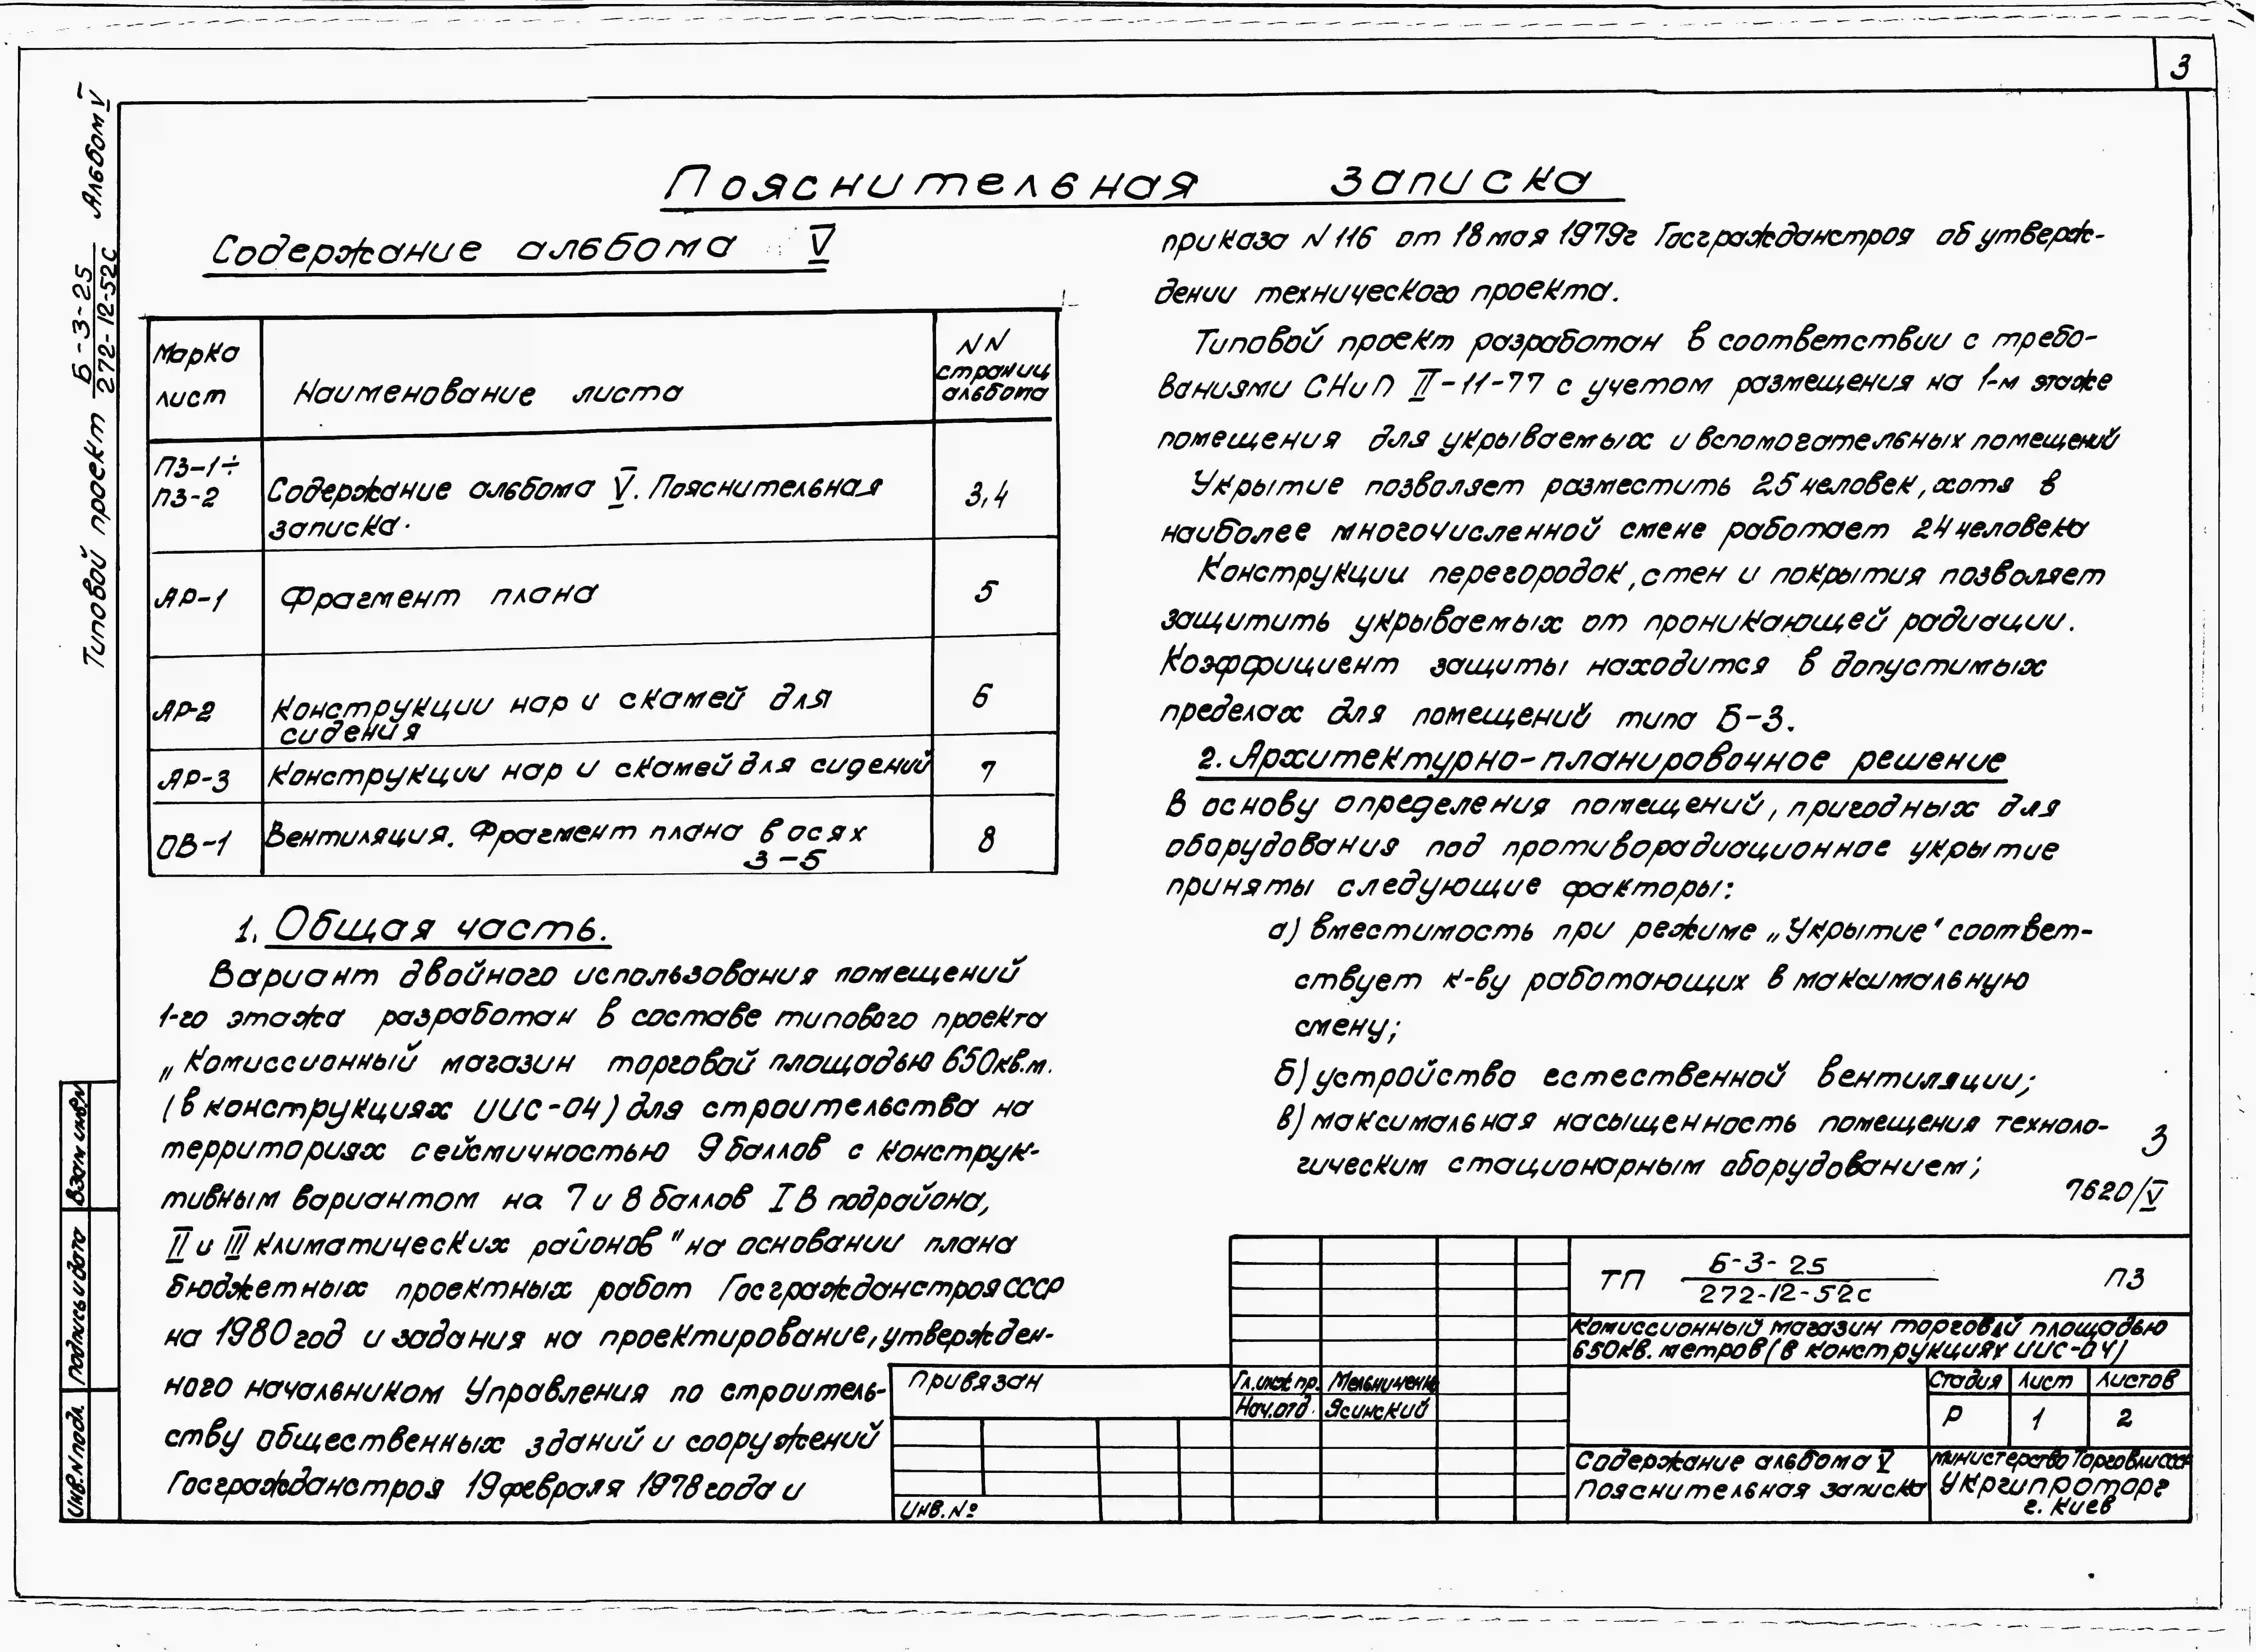 3
Типовой проект Б-3-25 / 272-12-52с Альбом V
Пояснительная записка
Содержание альбома V
Марка лист
Наименование листа
NN страниц альбома
ПЗ-1÷ ПЗ-2
Содержание альбома V. Пояснительная
записка.
3,4
АР-1
Фрагмент плана
5
АР-2
Конструкции нар и скамей для
сидения
6
АР-3
Конструкции нар и скамей для сидений
7
ОВ-1
Вентиляция. Фрагмент плана в осях
3-5
8
1. Общая часть.
Вариант двойного использования помещений
1-го этажа разработан в составе типового проекта
„Комиссионный магазин торговой площадью 650кв.м.
(в конструкциях ИИС-04) для строительства на
территориях сейсмичностью 9 баллов с конструк-
тивным вариантом на 7 и 8 баллов IВ подрайона,
II и III климатических районов" на основании плана
бюджетных проектных работ Госгражданстроя СССР
на 1980 год и задания на проектирование, утвержден-
ного начальником Управления по строитель-
ству общественных зданий и сооружений
Госгражданстроя 19 февраля 1978 года и
приказа N 116 от 18 мая 1979г Госгражданстроя об утверж-
дении технического проекта.
Типовой проект разработан в соответствии с требо-
ваниями СНиП II-11-77 с учетом размещения на 1-м этаже
помещения для укрываемых и вспомогательных помещений
Укрытие позволяет разместить 25 человек, хотя в
наиболее многочисленной смене работает 24 человека
Конструкции перегородок, стен и покрытия позволяет
защитить укрываемых от проникающей радиации.
Коэффициент защиты находится в допустимых
пределах для помещений типа Б-3.
2. Архитектурно-планировочное решение
В основу определения помещений, пригодных для
оборудования под противорадиационное укрытие
приняты следующие факторы:
а) вместимость при режиме „Укрытие" соответ-
ствует к-ву работающих в максимальную
смену;
б) устройство естественной вентиляции;
в) максимальная насыщенность помещения техноло-
гическим стационарным оборудованием;
3
7620/V
Взам инв.N
Подпись и дата
Инв.N подл.
Привязан
Инв.№
Гл.инж пр. Мельниченко
Нач.отд. Ясинский
ТП Б-3-25 / 272-12-52с ПЗ
Комиссионный магазин торговой площадью
650кв. метров (в конструкциях ИИС-04)
Стадия Лист Листов
Р 1 2
Содержание альбома V
Пояснительная записка
Министерство Торговли СССР
Укргипроторг
г. Киев